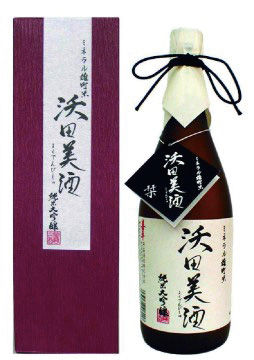 ミネラル雄町米
沃田美酒
よくでんびしゅ
純米大吟醸
ミネラル雄町米
沃田美酒
栞
ミネラル雄町米
沃田美酒
よくでんびしゅ
純米大吟醸